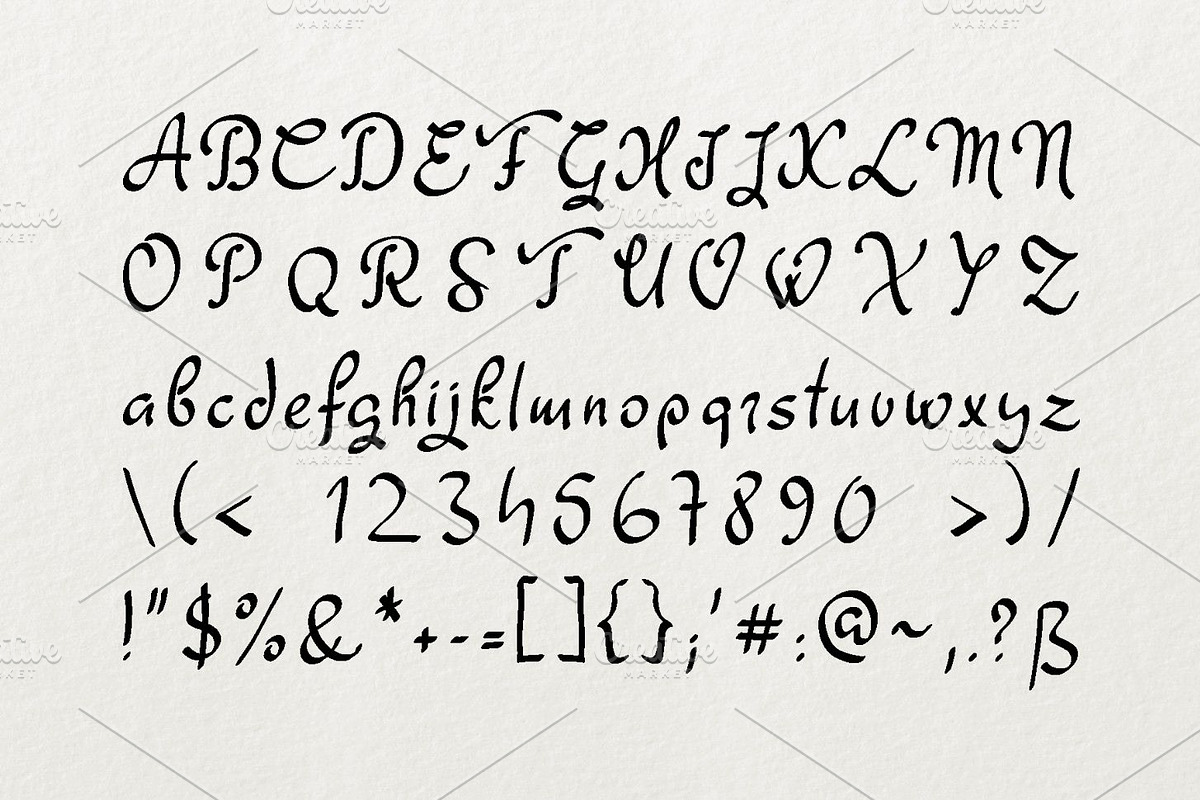 ABCDEFGHIJKLMN
OPQRSTUVWXYZ
abcdefghijklmnopqrstuvwxyz
\(< 1234567890 >)/
!"$%&*+-=[]{};'#:@~,.?ß
Creative Market
Creative Market
Creative Market
Creative Market
Creative Market
Creative Market
Creative Market
Creative Market